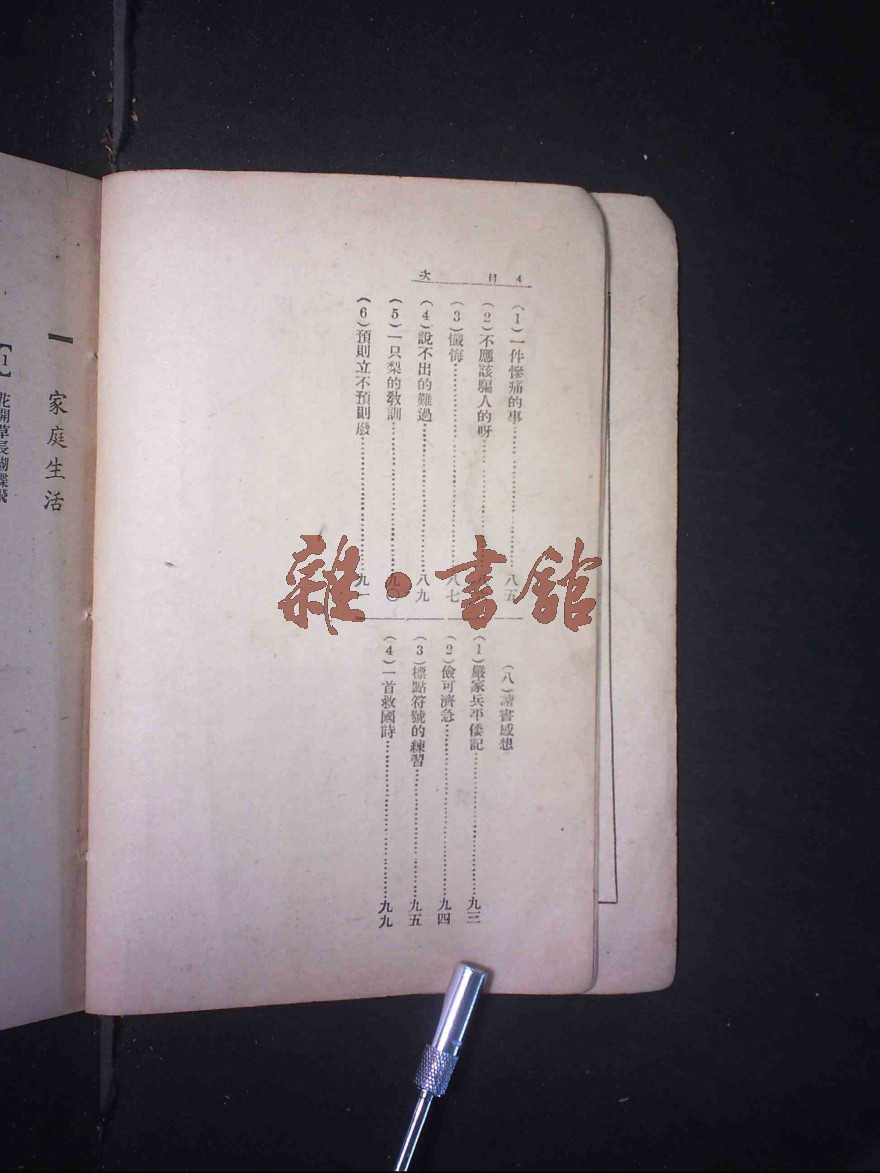 4 目 次
(1)一件慘痛的事……八五
(2)不應該騙人的呀……
(3)懺悔……八七
(4)說不出的難過……八九
(5)一只梨的教訓……九〇
(6)預則立不預則廢……九一
(八)讀書感想
(1)嚴家兵平倭記……九三
(2)儉可濟急……九四
(3)標點符號的練習……九五
(4)一首救國詩……九九
一 家庭生活
【1】花開草長蝴蝶飛
雜·書館